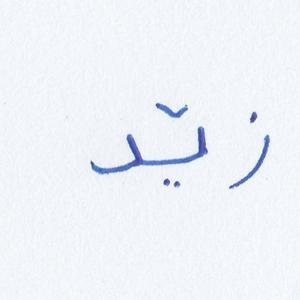 زێد